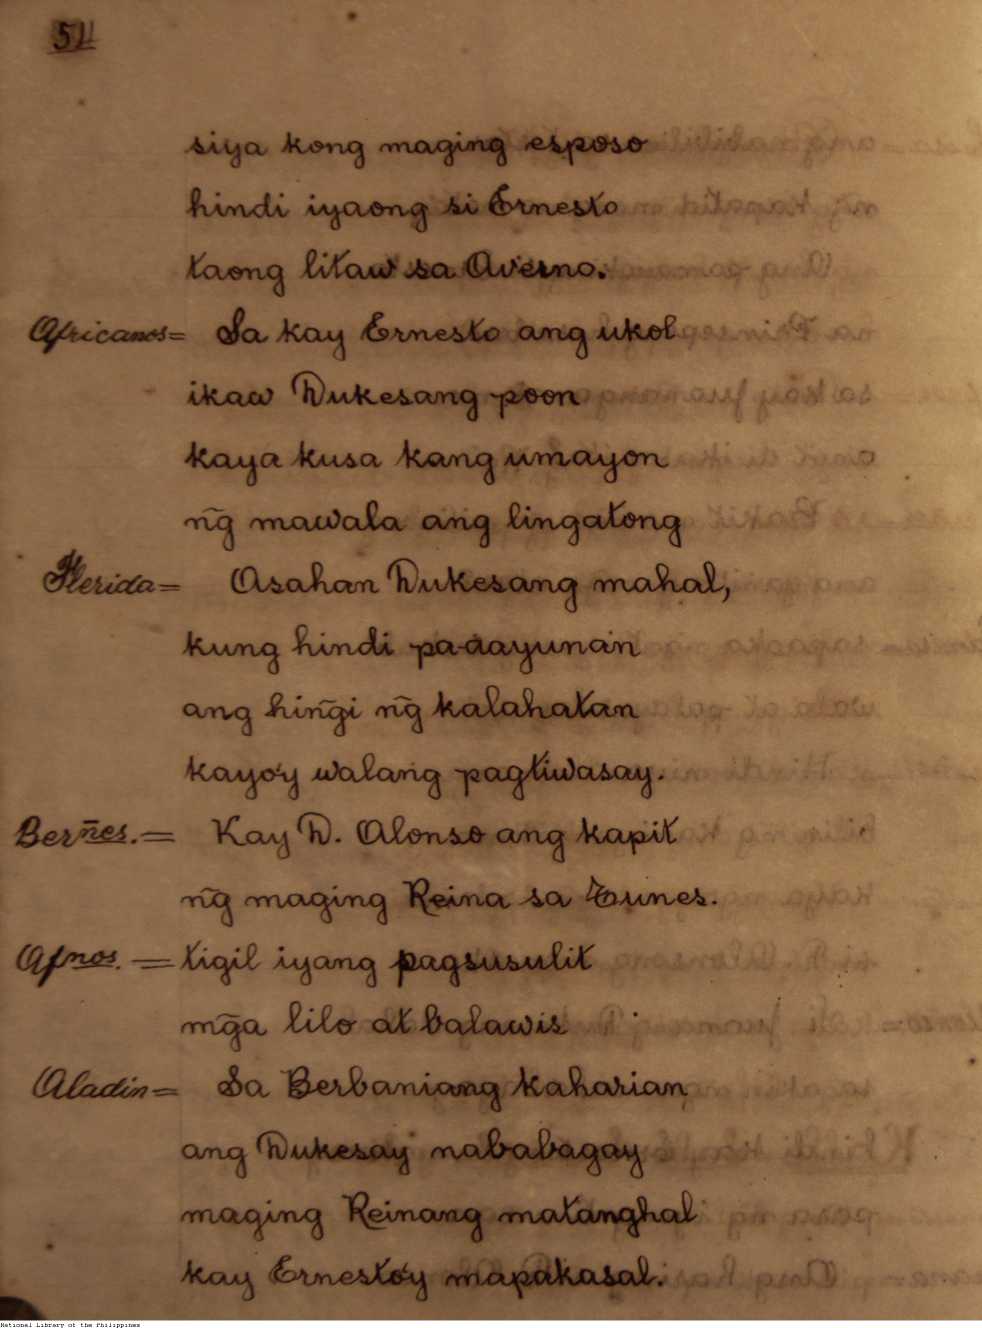 51
siya kong maging esposo
hindi iyaong si Ernesto
taong litaw sa Averno.
Africanos= Sa kay Ernesto ang ukol
ikaw Dukesang poon
kaya kusa kang umayon
n͠g mawala ang lingatong
Flerida= Asahan Dukesang mahal,
kung hindi pa-aayunan
ang hin͠gi n͠g kalahatan
kayo'y walang pagtiwasay.
Berñes.= Kay D. Alonso ang kapit
n͠g maging Reina sa Tunes.
Afnos.= tigil iyang pagsusulit
m͠ga lilo at balawis
Aladin= Sa Berbaniang kaharian
ang Dukesay nababagay
maging Reinang matanghal
kay Ernesto'y mapakasal.
National Library of the Philippines